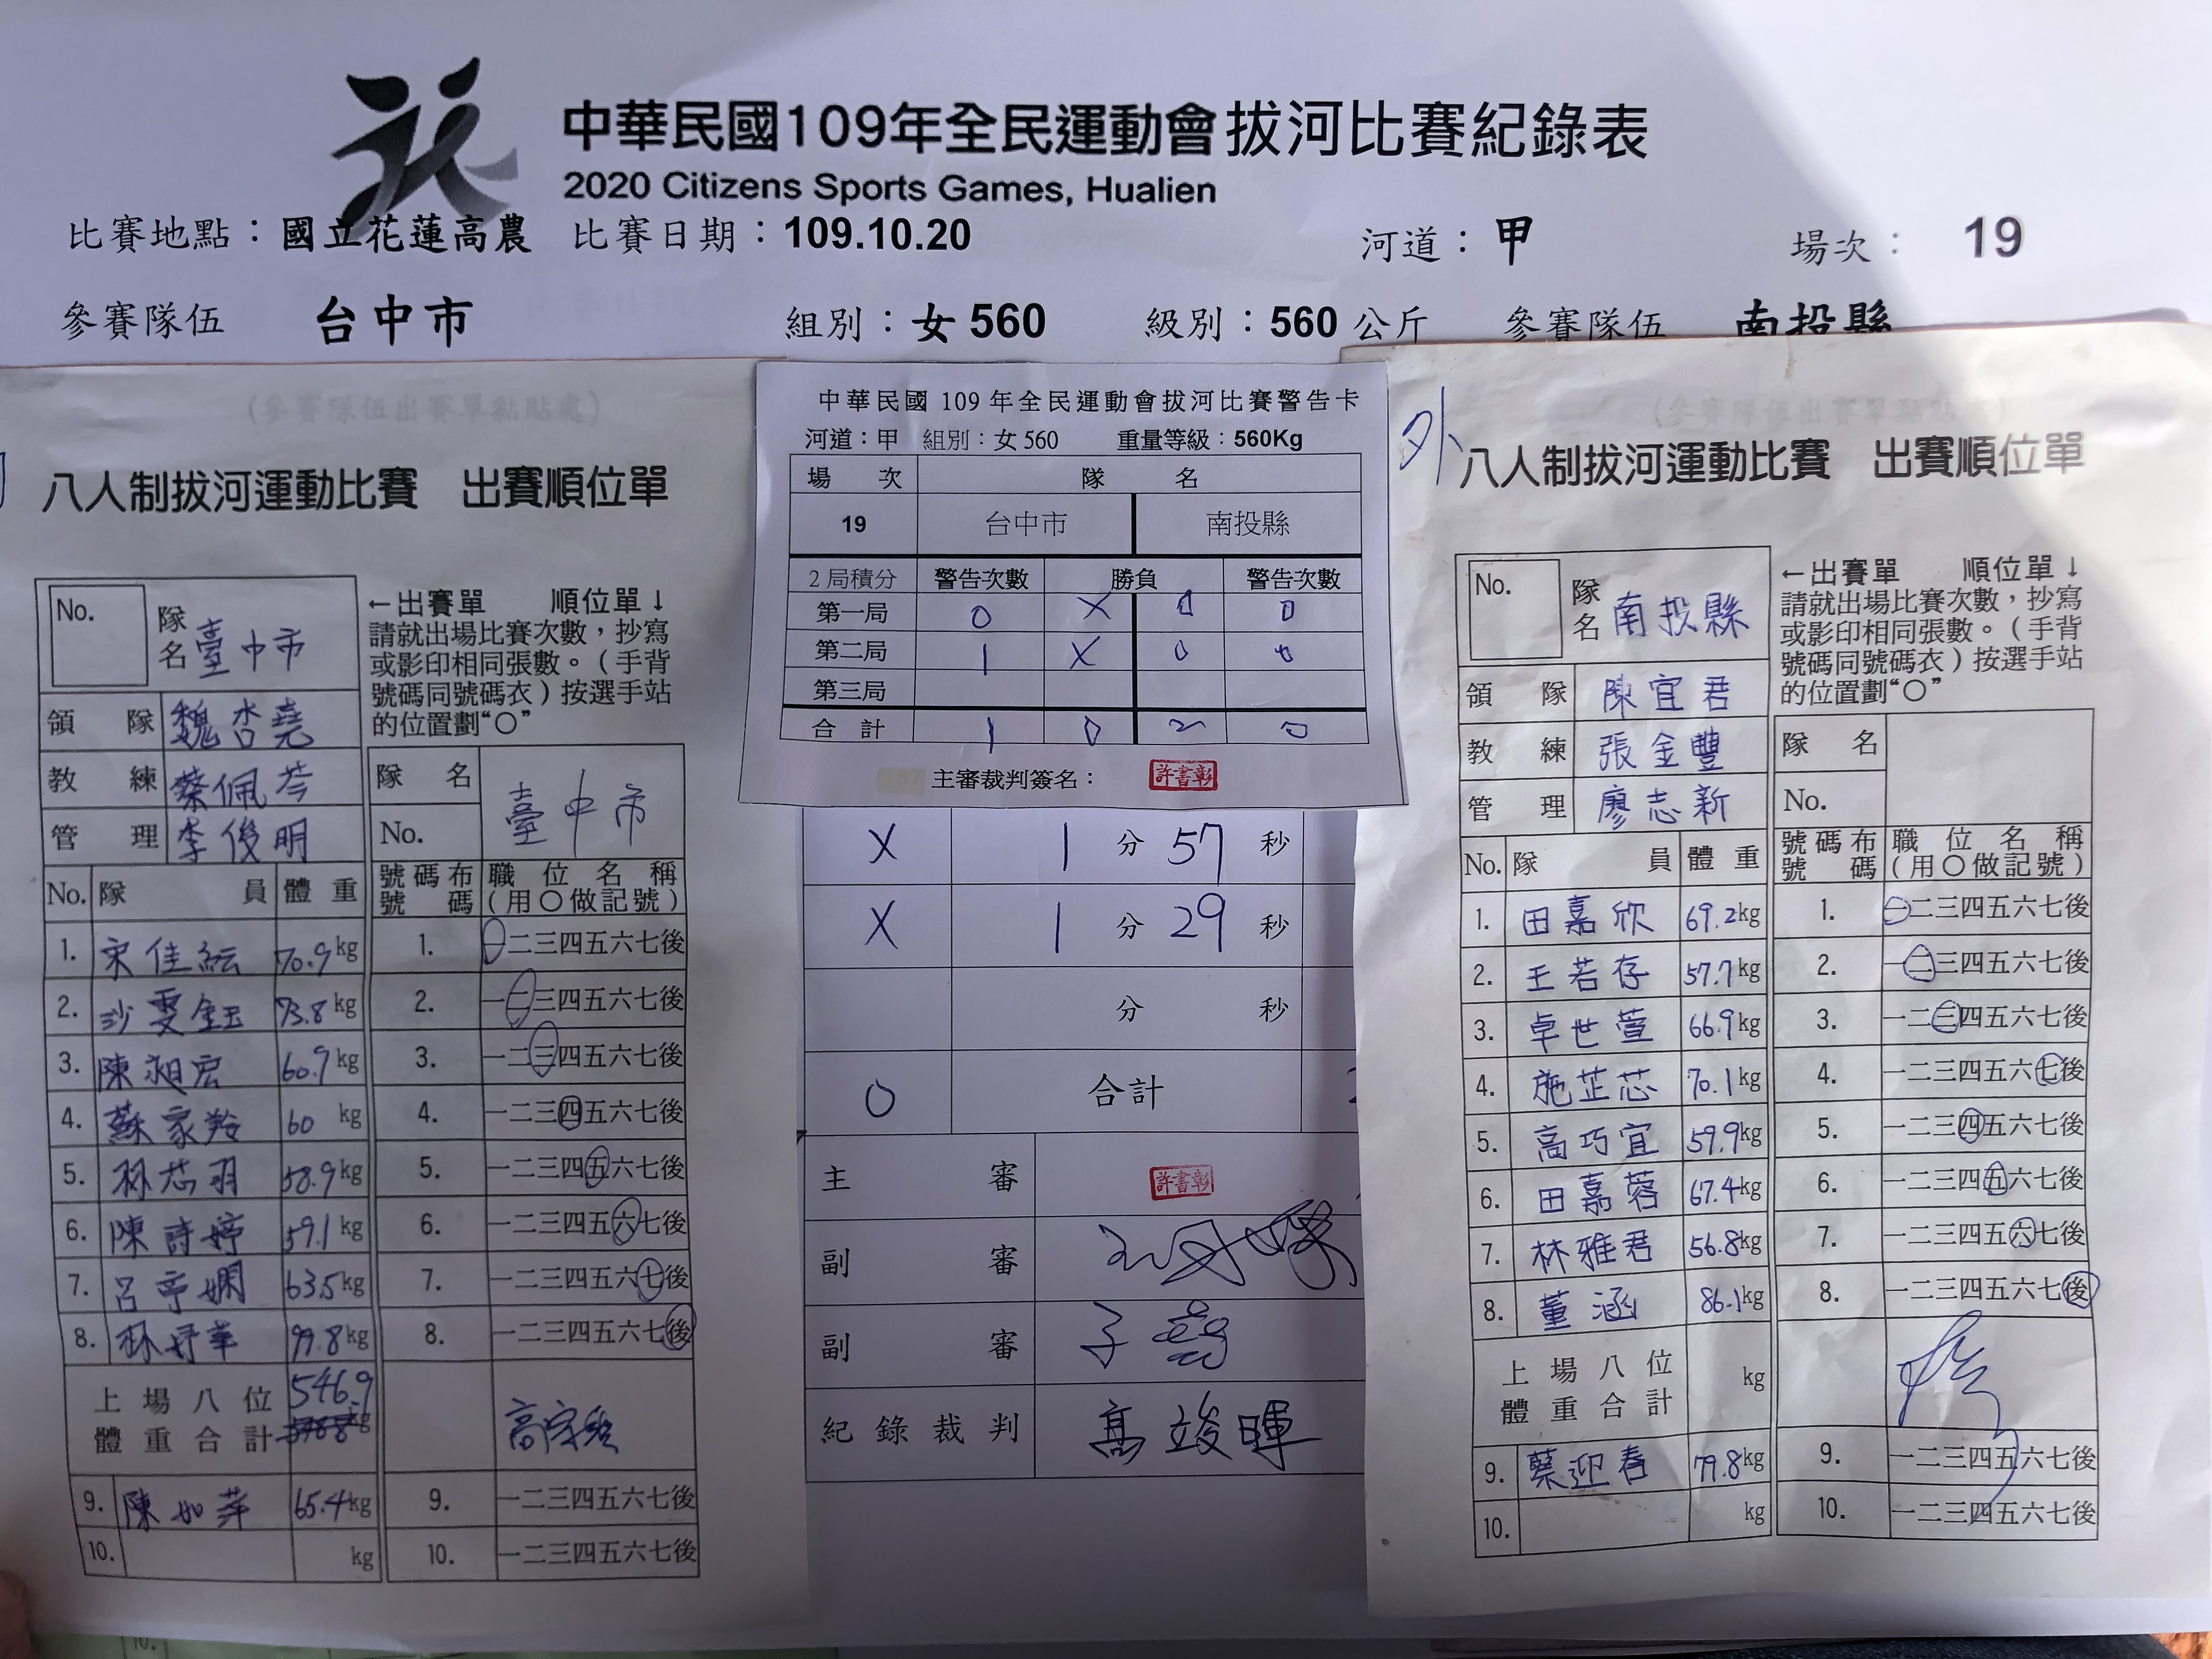 中華民國109年全民運動會拔河比賽紀錄表
2020 Citizens Sports Games, Hualien
比賽地點：國立花蓮高農 比賽日期：109.10.20 河道：甲 場次： 19
參賽隊伍 台中市 組別：女 560 級別：560 公斤 參賽隊伍 南投縣
(參賽隊伍出賽單黏貼處)
八人制拔河運動比賽 出賽順位單
No.
隊名 臺中市
←出賽單 順位單↓
請就出場比賽次數，抄寫
或影印相同張數。（手背
號碼同號碼衣）按選手站
的位置劃“○”
領隊 魏杏堯
教練 蔡佩芩
管理 李俊明
隊名 臺中市
No.
No. 隊員 體重 號碼布號碼 職位名稱(用○做記號)
1. 宋佳紜 70.9kg 1. 一二三四五六七後
2. 沙雯鈺 73.8kg 2. 一二三四五六七後
3. 陳昶宏 60.9kg 3. 一二三四五六七後
4. 蘇家羚 60 kg 4. 一二三四五六七後
5. 林芯羽 58.9kg 5. 一二三四五六七後
6. 陳詩婷 59.1kg 6. 一二三四五六七後
7. 呂亭嫻 63.5kg 7. 一二三四五六七後
8. 林妤華 99.8kg 8. 一二三四五六七後
上場八位體重合計 546.9 kg
9. 陳如萍 65.4kg 9. 一二三四五六七後
10. kg 10. 一二三四五六七後
中華民國 109 年全民運動會拔河比賽警告卡
河道：甲 組別：女 560 重量等級：560Kg
場次 隊名
19 台中市 南投縣
2局積分 警告次數 勝負 警告次數
第一局 0 X 0 0
第二局 1 X 0 0
第三局
合計 1 0 2 0
主審裁判簽名： 許書彰
X 1 分 57 秒
X 1 分 29 秒
分 秒
0 合計
主審 許書彰
副審
副審
紀錄裁判 髙竣暉
外
(參賽隊伍出賽單黏貼處)
八人制拔河運動比賽 出賽順位單
No.
隊名 南投縣
←出賽單 順位單↓
請就出場比賽次數，抄寫
或影印相同張數。（手背
號碼同號碼衣）按選手站
的位置劃“○”
領隊 陳宜君
教練 張金豐
管理 廖志新
隊名
No.
No. 隊員 體重 號碼布號碼 職位名稱(用○做記號)
1. 田嘉欣 69.2kg 1. 一二三四五六七後
2. 王若存 57.7kg 2. 一二三四五六七後
3. 卓世萱 66.9kg 3. 一二三四五六七後
4. 施芷芯 70.1kg 4. 一二三四五六七後
5. 高巧宜 59.9kg 5. 一二三四五六七後
6. 田嘉蓉 67.4kg 6. 一二三四五六七後
7. 林雅君 56.8kg 7. 一二三四五六七後
8. 董涵 86.1kg 8. 一二三四五六七後
上場八位體重合計 kg
9. 蔡迎春 79.8kg 9. 一二三四五六七後
10. kg 10. 一二三四五六七後